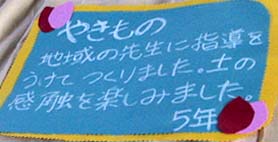 やきもの
地域の先生に指導を
うけて つくりました。土の
感触を楽しみました。
5年